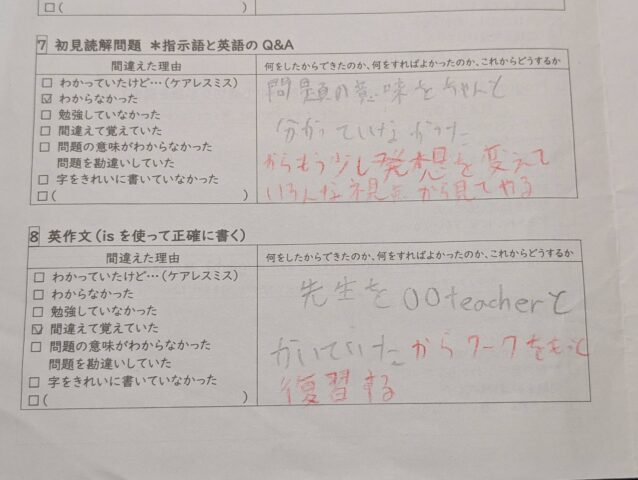 □(                                    )
7 初見読解問題 *指示語と英語のQ&A
間違えた理由 何をしたからできたのか、何をすればよかったのか、これからどうするか
□ わかっていたけど…(ケアレスミス)
☑ わからなかった
□ 勉強していなかった
□ 間違えて覚えていた
□ 問題の意味がわからなかった
問題を勘違いしていた
□ 字をきれいに書いていなかった
□(                                    )
問題の意味をちゃんと
分かっていなかった
からもう少し発想を変えて
いろんな視点から見てやる
8 英作文(isを使って正確に書く)
間違えた理由 何をしたからできたのか、何をすればよかったのか、これからどうするか
□ わかっていたけど…(ケアレスミス)
□ わからなかった
□ 勉強していなかった
☑ 間違えて覚えていた
□ 問題の意味がわからなかった
問題を勘違いしていた
□ 字をきれいに書いていなかった
□(                                    )
先生を〇〇teacherと
かいていた からワークをもっと
復習する